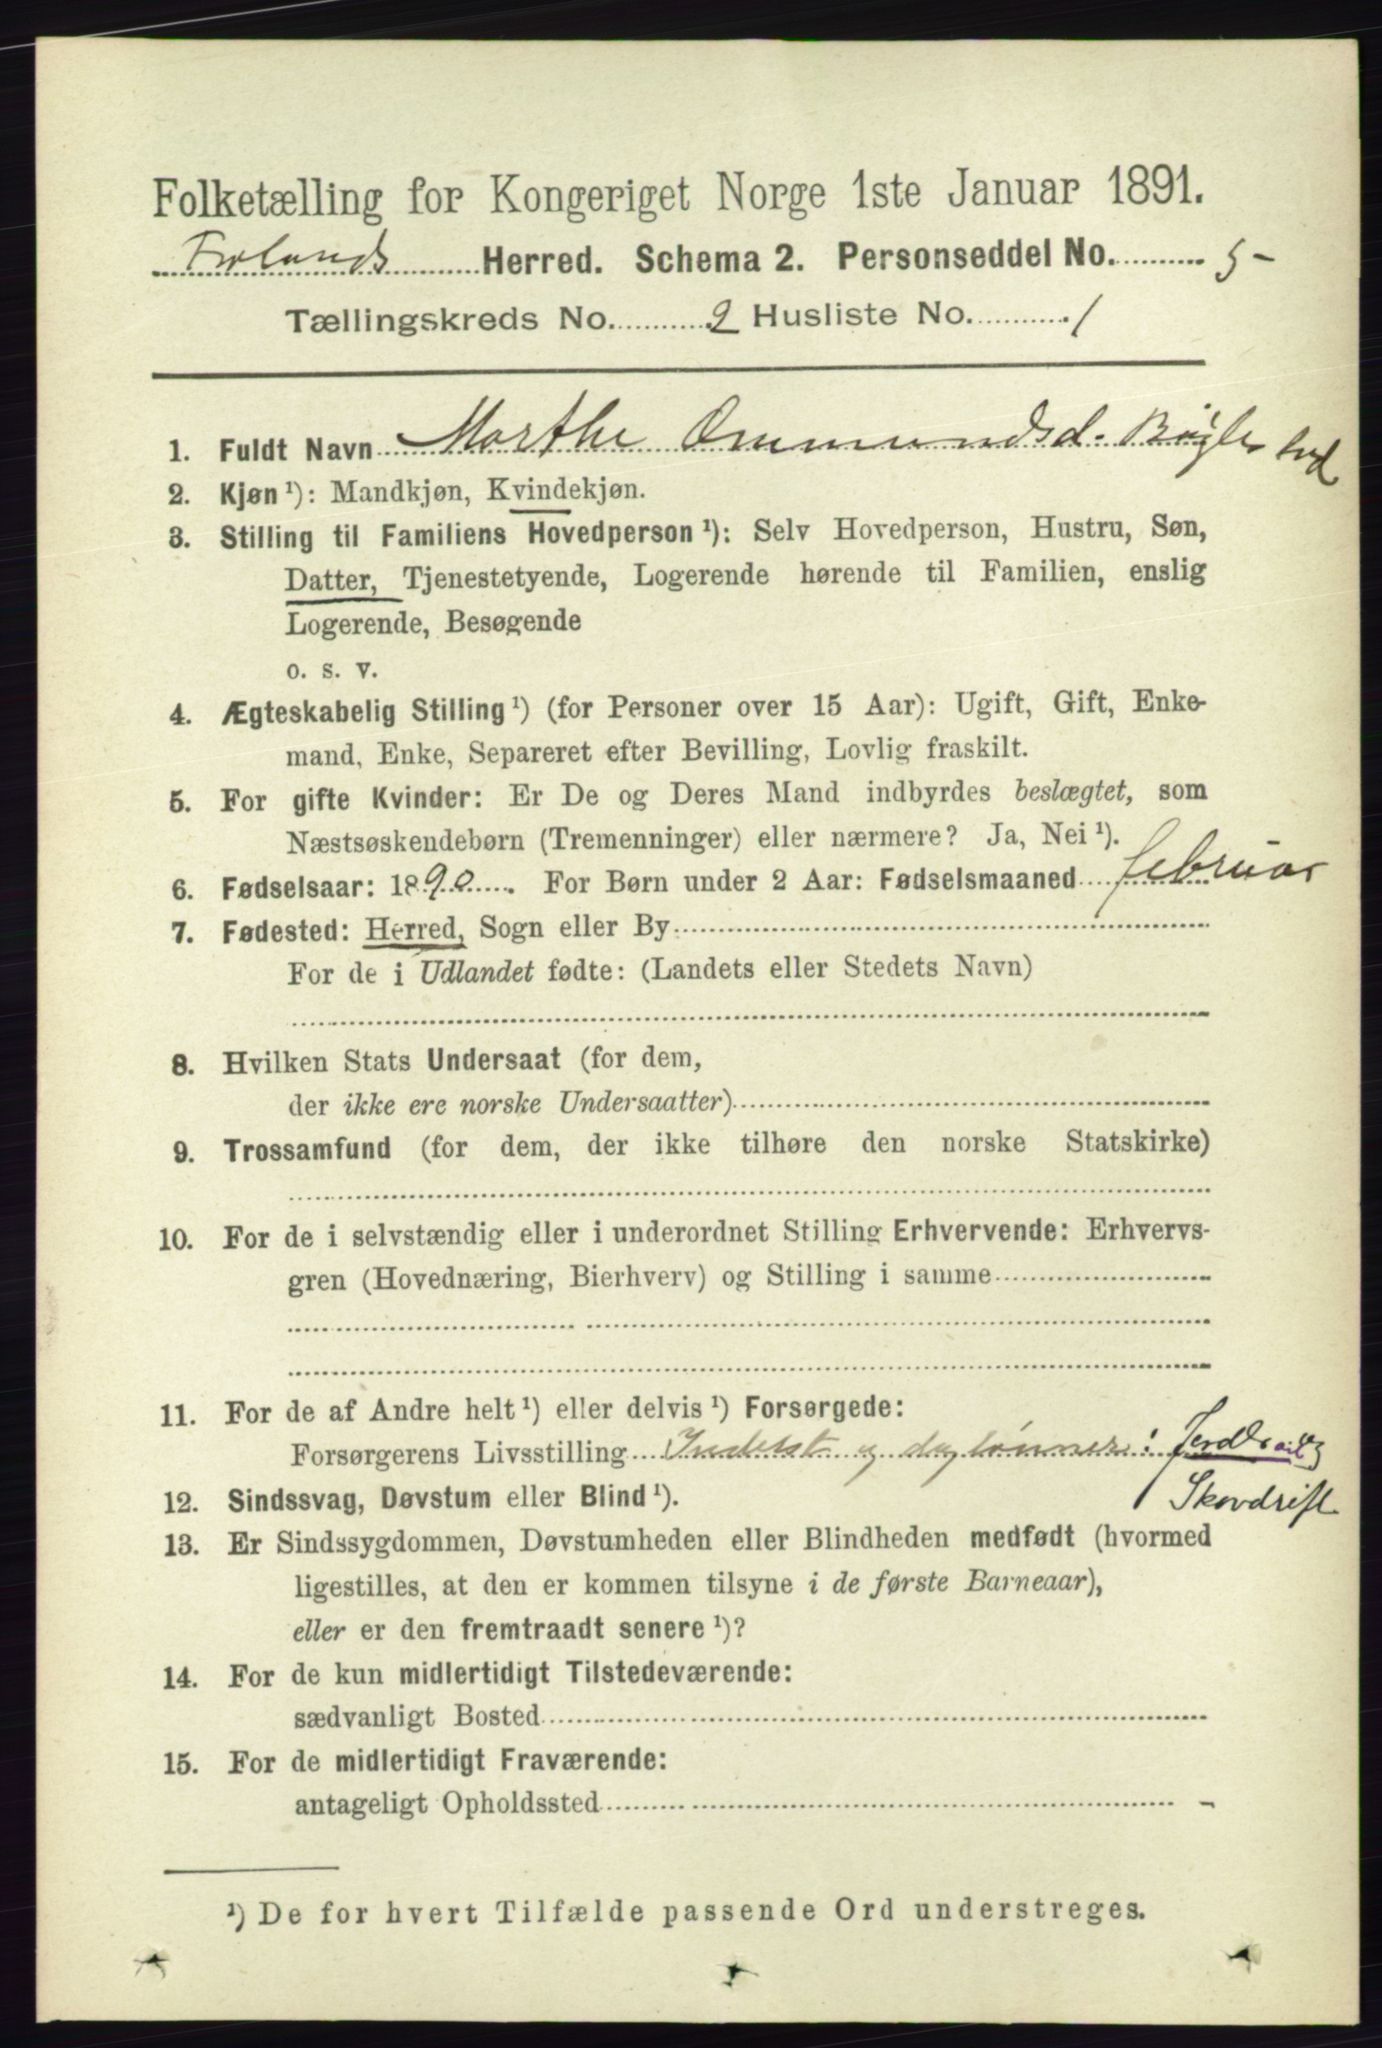 Folketælling for Kongeriget Norge 1ste Januar 1891.
Frolands Herred. Schema 2. Personseddel No. 5-
Tællingskreds No. 2 Husliste No. 1
1. Fuldt Navn Marthe Ommundsd. Bøylestad
2. Kjøn ¹): Mandkjøn, Kvindekjøn.
3. Stilling til Familiens Hovedperson ¹): Selv Hovedperson, Hustru, Søn,
Datter, Tjenestetyende, Logerende hørende til Familien, enslig
Logerende, Besøgende
o. s. v.
4. Ægteskabelig Stilling ¹) (for Personer over 15 Aar): Ugift, Gift, Enke-
mand, Enke, Separeret efter Bevilling, Lovlig fraskilt.
5. For gifte Kvinder: Er De og Deres Mand indbyrdes beslægtet, som
Næstsøskendebørn (Tremenninger) eller nærmere? Ja, Nei ¹).
6. Fødselsaar: 1890. For Børn under 2 Aar: Fødselsmaaned februar
7. Fødested: Herred, Sogn eller By
For de i Udlandet fødte: (Landets eller Stedets Navn)
8. Hvilken Stats Undersaat (for dem,
der ikke ere norske Undersaatter)
9. Trossamfund (for dem, der ikke tilhøre den norske Statskirke)
10. For de i selvstændig eller i underordnet Stilling Erhvervende: Erhvervs-
gren (Hovednæring, Bierhverv) og Stilling i samme
11. For de af Andre helt ¹) eller delvis ¹) Forsørgede:
Forsørgerens Livsstilling Inderst og daglønner i Jordbr og
Skovdrift
12. Sindssvag, Døvstum eller Blind ¹).
13. Er Sindssygdommen, Døvstumheden eller Blindheden medfødt (hvormed
ligestilles, at den er kommen tilsyne i de første Barneaar),
eller er den fremtraadt senere ¹)?
14. For de kun midlertidigt Tilstedeværende:
sædvanligt Bosted
15. For de midlertidigt Fraværende:
antageligt Opholdssted -
¹) De for hvert Tilfælde passende Ord understreges.